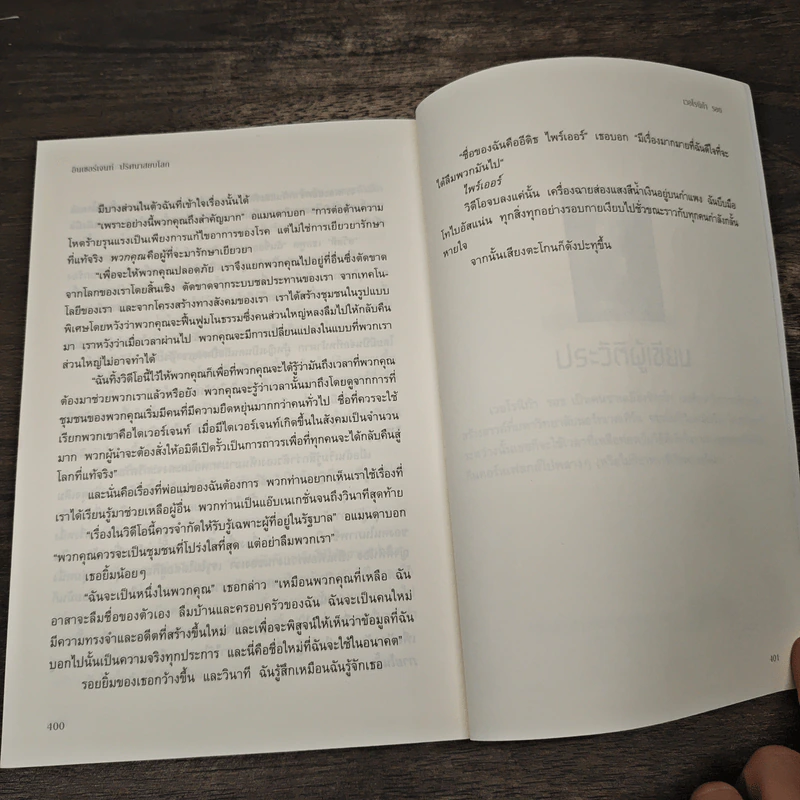 อินเซอร์เจนท์ ปริศนาสยบโลก
มีบางส่วนในตัวฉันที่เข้าใจเรื่องนั้นได้
"เพราะอย่างนี้พวกคุณถึงสำคัญมาก" อแมนดาบอก "การต่อต้านความ
โหดร้ายรุนแรงเป็นเพียงการแก้ไขอาการของโรค แต่ไม่ใช่การเยียวยารักษา
ที่แท้จริง พวกคุณคือผู้ที่จะมารักษาเยียวยา
"เพื่อจะให้พวกคุณปลอดภัย เราจึงแยกพวกคุณไปอยู่ที่อื่นซึ่งตัดขาด
จากโลกของเราโดยสิ้นเชิง ตัดขาดจากระบบชลประทานของเรา จากเทคโน-
โลยีของเรา และจากโครงสร้างทางสังคมของเรา เราได้สร้างชุมชนในรูปแบบ
พิเศษโดยหวังว่าพวกคุณจะฟื้นฟูมโนธรรมซึ่งคนส่วนใหญ่หลงลืมไปให้กลับคืน
มา เราหวังว่าเมื่อเวลาผ่านไป พวกคุณจะมีการเปลี่ยนแปลงในแบบที่พวกเรา
ส่วนใหญ่ไม่อาจทำได้
"ฉันทิ้งวิดีโอนี้ไว้ให้พวกคุณก็เพื่อที่พวกคุณจะได้รู้ว่ามันถึงเวลาที่พวกคุณ
ต้องมาช่วยพวกเราแล้วหรือยัง พวกคุณจะรู้ว่าเวลานั้นมาถึงโดยดูจากการที่
ชุมชนของพวกคุณเริ่มมีคนที่มีความยืดหยุ่นมากกว่าคนทั่วไป ชื่อที่ควรจะใช้
เรียกพวกเขาคือไดเวอร์เจนท์ เมื่อมีไดเวอร์เจนท์เกิดขึ้นในสังคมเป็นจำนวน
มาก พวกผู้นำจะต้องสั่งให้อมิตีเปิดรั้วเป็นการถาวรเพื่อที่ทุกคนจะได้กลับคืนสู่
โลกที่แท้จริง"
และนั่นคือเรื่องที่พ่อแม่ของฉันต้องการ พวกท่านอยากเห็นเราใช้เรื่องที่
เราได้เรียนรู้มาช่วยเหลือผู้อื่น พวกท่านเป็นแอ๊บเนเกชั่นจนถึงวินาทีสุดท้าย
"เรื่องในวิดีโอนี้ควรจำกัดให้รับรู้เฉพาะผู้ที่อยู่ในรัฐบาล" อแมนดาบอก
"พวกคุณควรจะเป็นชุมชนที่โปร่งใสที่สุด แต่อย่าลืมพวกเรา"
เธอยิ้มน้อยๆ
"ฉันจะเป็นหนึ่งในพวกคุณ" เธอกล่าว "เหมือนพวกคุณที่เหลือ ฉัน
อาสาจะลืมชื่อของตัวเอง ลืมบ้านและครอบครัวของฉัน ฉันจะเป็นคนใหม่
มีความทรงจำและอดีตที่สร้างขึ้นใหม่ และเพื่อจะพิสูจน์ให้เห็นว่าข้อมูลที่ฉัน
บอกไปนั้นเป็นความจริงทุกประการ และนี่คือชื่อใหม่ที่ฉันจะใช้ในอนาคต"
รอยยิ้มของเธอกว้างขึ้น และวินาที ฉันรู้สึกเหมือนฉันรู้จักเธอ
400
เวอโรนิก้า รอธ
"ชื่อของฉันคืออีดิธ ไพร์เออร์" เธอบอก "มีเรื่องมากมายที่ฉันดีใจที่จะ
ได้ลืมพวกมันไป"
ไพร์เออร์
วิดีโอจบลงแค่นั้น เครื่องฉายส่องแสงสีน้ำเงินอยู่บนกำแพง ฉันบีบมือ
โทไบอัสแน่น ทุกสิ่งทุกอย่างรอบกายเงียบไปชั่วขณะราวกับทุกคนกำลังกลั้น
หายใจ
จากนั้นเสียงตะโกนก็ดังปะทุขึ้น
401